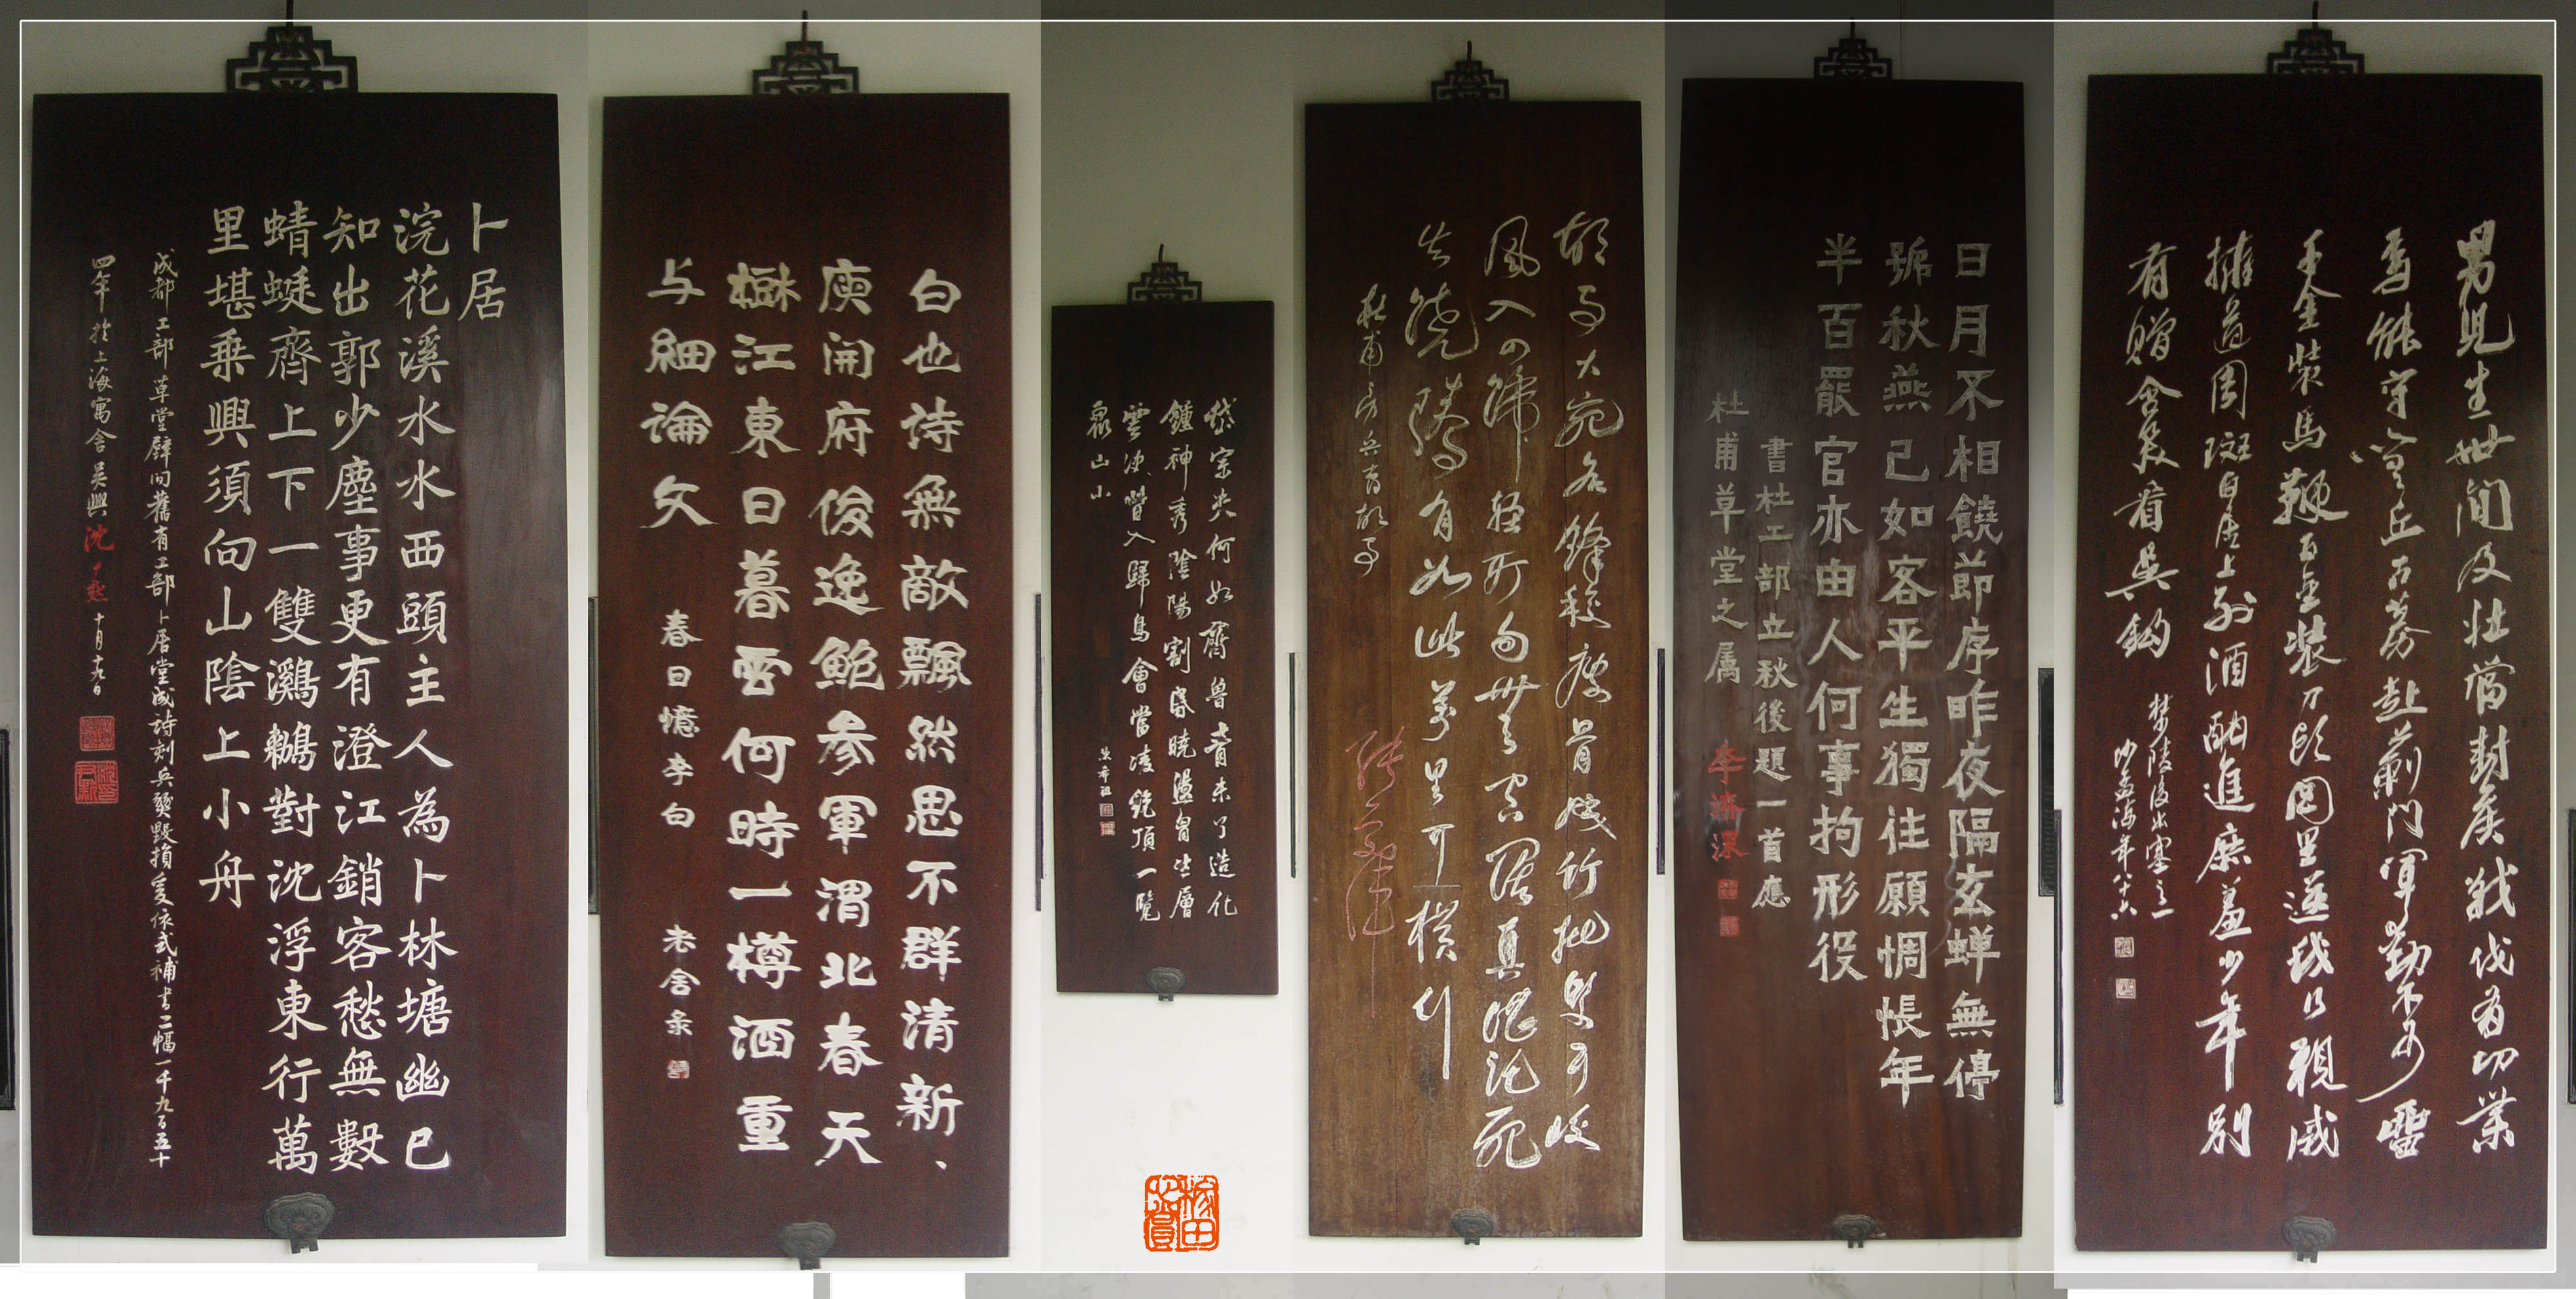 卜居
浣花溪水水西頭主人為卜林塘幽已
知出郭少塵事更有澄江銷客愁無數
蜻蜓齊上下一雙鸂鶒對沈浮東行萬
里堪乘興須向山陰上小舟
成都工部草堂壁間舊有工部卜居堂成詩刻兵燹毀損爰依式補書二幅一千九百五十
四年於上海寓舍吳興沈尹默十月十九日
白也詩無敵飄然思不群清新、
庾開府俊逸鮑參軍渭北春天
樹江東日暮雲何時一樽酒重
与細論文
春日憶李白 老舍录
岱宗夫何如齊魯青未了造化
鍾神秀陰陽割昏曉盪胷生層
雲決眥入歸鳥會當凌絕頂一覽
衆山小
胡馬大宛名鋒稜瘦骨成竹批雙耳峻
風入四蹄輕所向無空闊真堪託死
生驍騰有如此萬里可橫行
杜甫房兵曹胡馬
日月不相饒節序昨夜隔玄蟬無停
號秋燕已如客平生獨往願惆悵年
半百罷官亦由人何事拘形役
書杜工部立秋後題一首應
杜甫草堂之属 李濟深
男兒生世間及壯當封侯戰伐有功業
焉能守舊丘召募赴薊門軍動不可留
千金裝馬鞭百金裝刀頭閭里送我行親戚
擁道周斑白居上列酒酣進庶羞少年別
有贈含笑看吳鉤
杜陵後出塞之一
沙孟海年八十六